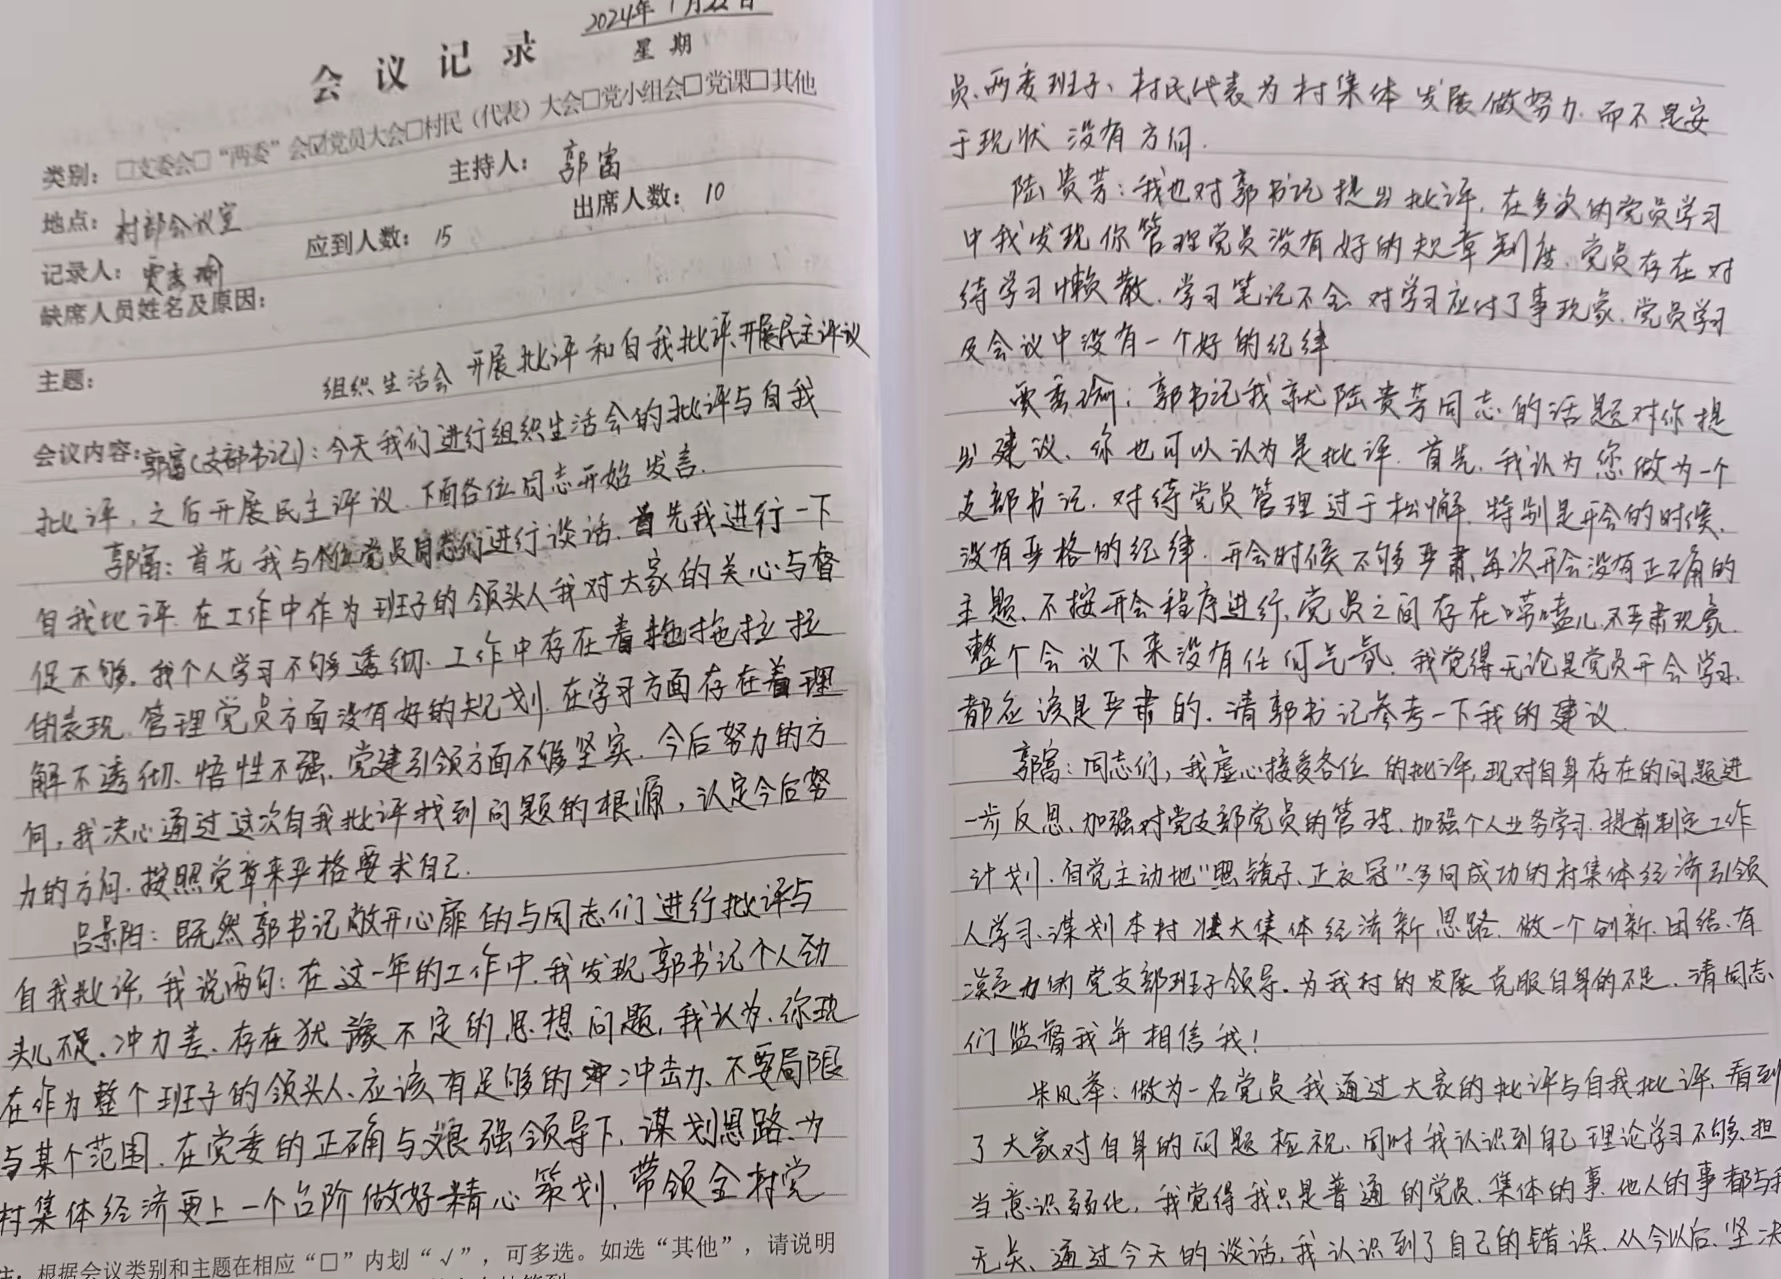 2024年1月22日
会议记录
星期
类别：□支委会□“两委”会☑党员大会□村民（代表）大会□党小组会□党课□其他
主持人：郭富
地点：村部会议室
出席人数：10
应到人数：15
记录人：贾秀瑜
缺席人员姓名及原因：
主题：
组织生活会 开展批评和自我批评、开展民主评议
会议内容：郭富（支部书记）：今天我们进行组织生活会的批评与自我
批评，之后开展民主评议．下面各位同志开始发言．
郭富：首先我与各位党员同志们进行谈话．首先我进行一下
自我批评．在工作中作为班子的领头人我对大家的关心与督
促不够．我个人学习不够透彻．工作中存在着拖拖拉拉
的表现．管理党员方面没有好的规划．在学习方面存在着理
解不透彻、悟性不强、党建引领方面不够坚实．今后努力的方
向，我决心通过这次自我批评找到问题的根源，认定今后努
力的方向．按照党章来严格要求自己．
吕景阳：既然郭书记敞开心扉的与同志们进行批评与
自我批评，我说两句：在这一年的工作中．我发现郭书记个人劲
头儿不足、冲力差、存在犹豫不定的思想问题，我认为．你现
在作为整个班子的领头人、应该有足够的冲击力、不要局限
与某个范围．在党委的正确与坚强领导下．谋划思路．为
村集体经济更上一个台阶做好精心策划，带领全村党
注：根据会议类别和主题在相应“□”内划“√”，可多选。如选“其他”，请说明
员、两委班子、村民代表为村集体发展做努力．而不是安
于现状 没有方向．
陆贵芳：我也对郭书记提出批评，在多次的党员学习
中我发现你管理党员没有好的规章制度、党员存在对
待学习懒散、学习笔记不全、对学习应付了事现象．党员学习
及会议中没有一个好的纪律
贾秀瑜：郭书记我就陆贵芳同志的话题对你提
出建议、你也可以认为是批评．首先，我认为您做为一个
支部书记，对待党员管理过于松懈．特别是开会的时候．
没有严格的纪律．开会时候不够严肃、每次开会没有正确的
主题、不按开会程序进行，党员之间存在唠嗑儿、不严肃现象．
整个会议下来没有任何气氛．我觉得无论是党员开会学习．
都应该是严肃的．请郭书记参考一下我的建议．
郭富：同志们，我虚心接受各位的批评，现对自身存在的问题进
一步反思、加强对党支部党员的管理．加强个人业务学习．提前制定工作
计划．自觉主动地“照镜子、正衣冠”．多向成功的村集体经济引领
人学习、谋划本村壮大集体经济新思路．做一个创新、团结、有
凝聚力的党支部班子领导．为我村的发展克服自身的不足．请同志
们监督我并相信我！
朱凤举：做为一名党员我通过大家的批评与自我批评．看到
了大家对自身的问题检视．同时我认识到自己理论学习不够、担
当意识弱化，我觉得我只是普通的党员、集体的事、他人的事都与我
无关、通过今天的谈话，我认识到了自己的错误．从今以后．坚决